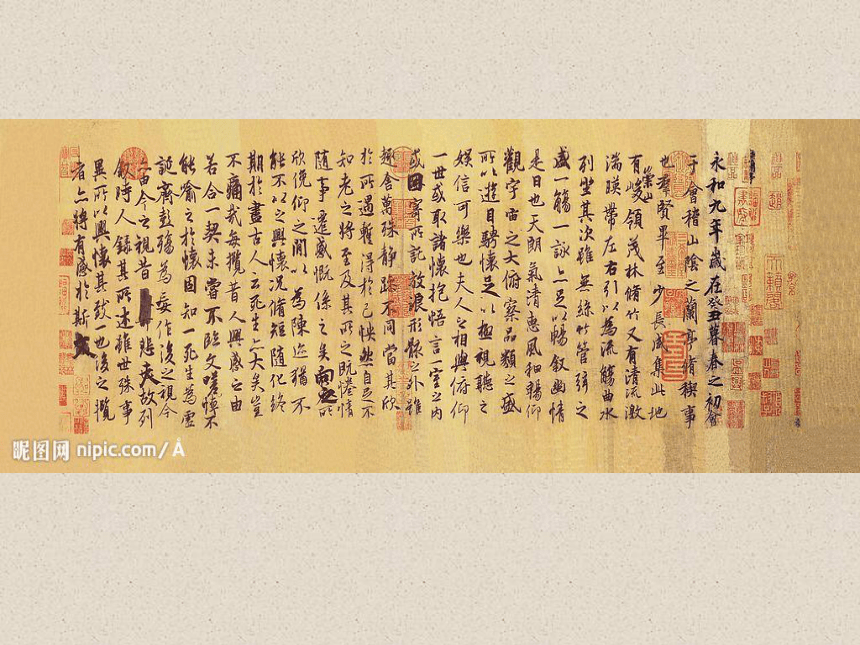 永和九年歲在癸丑暮春之初會
于會稽山陰之蘭亭脩稧事
也羣賢畢至少長咸集此地
有崇山峻領茂林脩竹又有清流激
湍暎帶左右引以為流觴曲水
列坐其次雖無絲竹管弦之
盛一觴一詠亦足以暢敘幽情
是日也天朗氣清惠風和暢仰
觀宇宙之大俯察品類之盛
所以遊目騁懷足以極視聽之
娛信可樂也夫人之相與俯仰
一世或取諸懷抱悟言一室之內
或因寄所託放浪形骸之外雖
趣舍萬殊靜躁不同當其欣
於所遇蹔得於己怏然自足不
知老之將至及其所之既惓情
隨事遷感慨係之矣向之所
欣俛仰之閒以為陳迹猶不
能不以之興懷況脩短隨化終
期於盡古人云死生亦大矣豈
不痛哉每攬昔人興感之由
若合一契未嘗不臨文嗟悼不
能喻之於懷固知一死生為虛
誕齊彭殤為妄作後之視今
亦由今之視昔悲夫故列
敘時人錄其所述雖世殊事
異所以興懷其致一也後之攬
者亦將有感於斯文
昵图网 nipic.com/